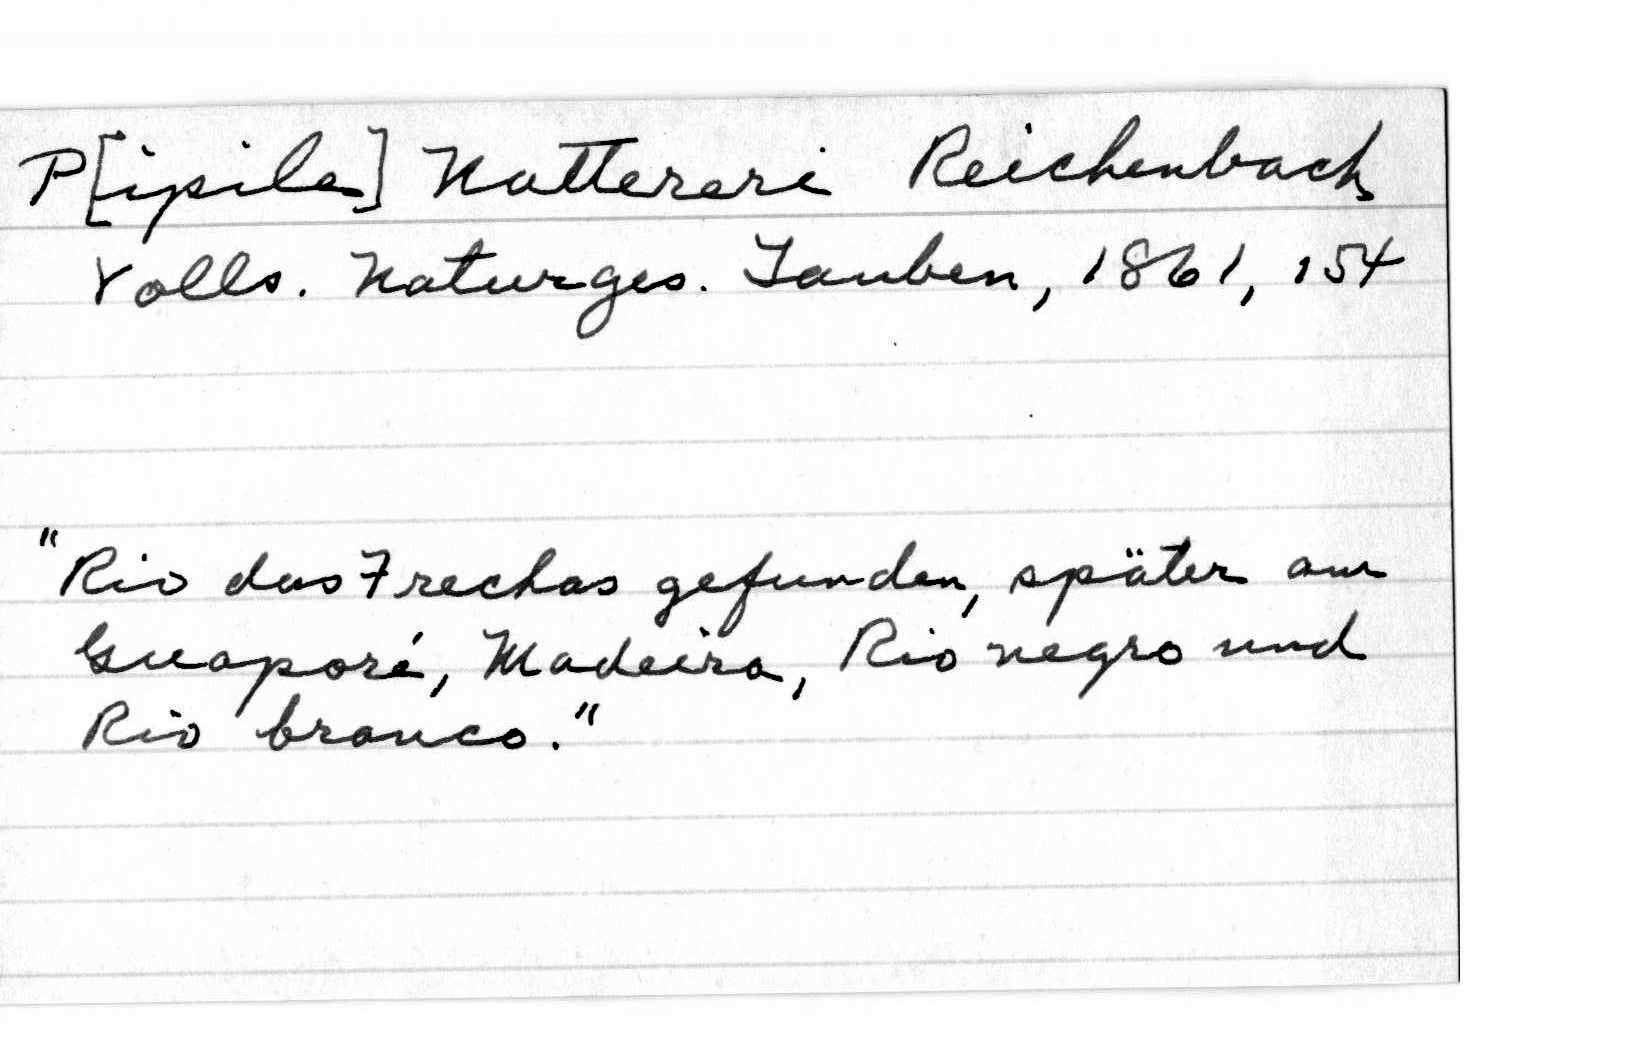 P[ipile] Nattereri Reichenbach
Volls. Naturges. Tauben, 1861, 154
"Rio das Frechas gefunden, später am
Guaporé, Madeira, Rio negro und
Rio branco."